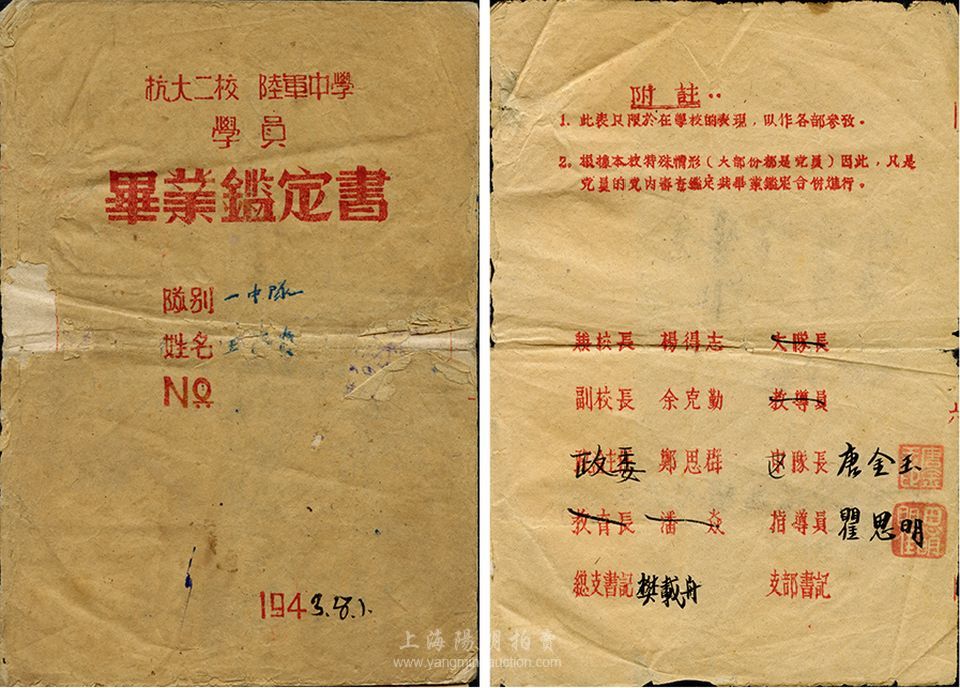 杭大二校 陸軍中學
學員
畢業鑑定書
隊别 一中隊
姓名
NO
1943.8.1.
附註：
1. 此表只限於在學校的表現，以作各部參攷。
2. 根據本校特殊情形（大部份都是党員）因此，凡是
党員的党内審查鑑定與畢業鑑定合併進行。
兼校長 楊得志 大隊長
副校長 余克勤 教導員
政委 鄭思群 区隊長 唐金玉
教育長 潘焱 指導員 瞿思明
總支書記 樊載舟 支部書記
上海陽明拍賣
www.yangmingauction.com